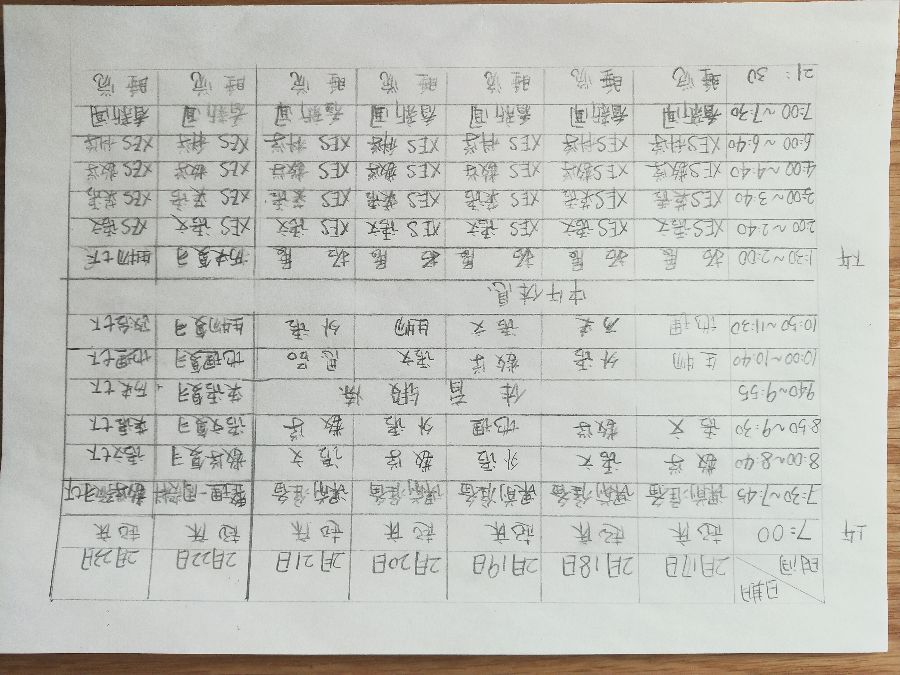 日期
时间 2月17日 2月18日 2月19日 2月20日 2月21日 2月22日 2月23日
上午 7:00 起床 起床 起床 起床 起床 起床 起床
7:30~7:45 课前准备 课前准备 课前准备 课前准备 课前准备 整理一周资料
8:00~8:40 数学 语文 外语 数学 语文 数学复习 语文七下
8:50~9:30 语文 数学 地理 外语 数学 语文复习 英语七下
9:40~9:55 体育锻炼 英语复习 历史七下
10:00~10:40 生物 外语 数学 语文 思品 地理复习 地理七下
10:50~11:30 地理 历史 语文 生物 外语 生物复习 政治七下
中午休息
下午 1:30~2:00 拓展 拓展 拓展 拓展 拓展 历史复习 生物七下
2:00~2:40 XES语文 XES语文 XES语文 XES语文 XES语文 XES语文 XES语文
3:00~3:40 XES英语 XES英语 XES英语 XES英语 XES英语 XES英语 XES英语
4:00~4:40 XES数学 XES数学 XES数学 XES数学 XES数学 XES数学 XES数学
6:00~6:40 XES科学 XES科学 XES科学 XES科学 XES科学 XES科学 XES科学
7:00~7:30 看新闻 看新闻 看新闻 看新闻 看新闻 看新闻 看新闻
21:30 睡觉 睡觉 睡觉 睡觉 睡觉 睡觉 睡觉